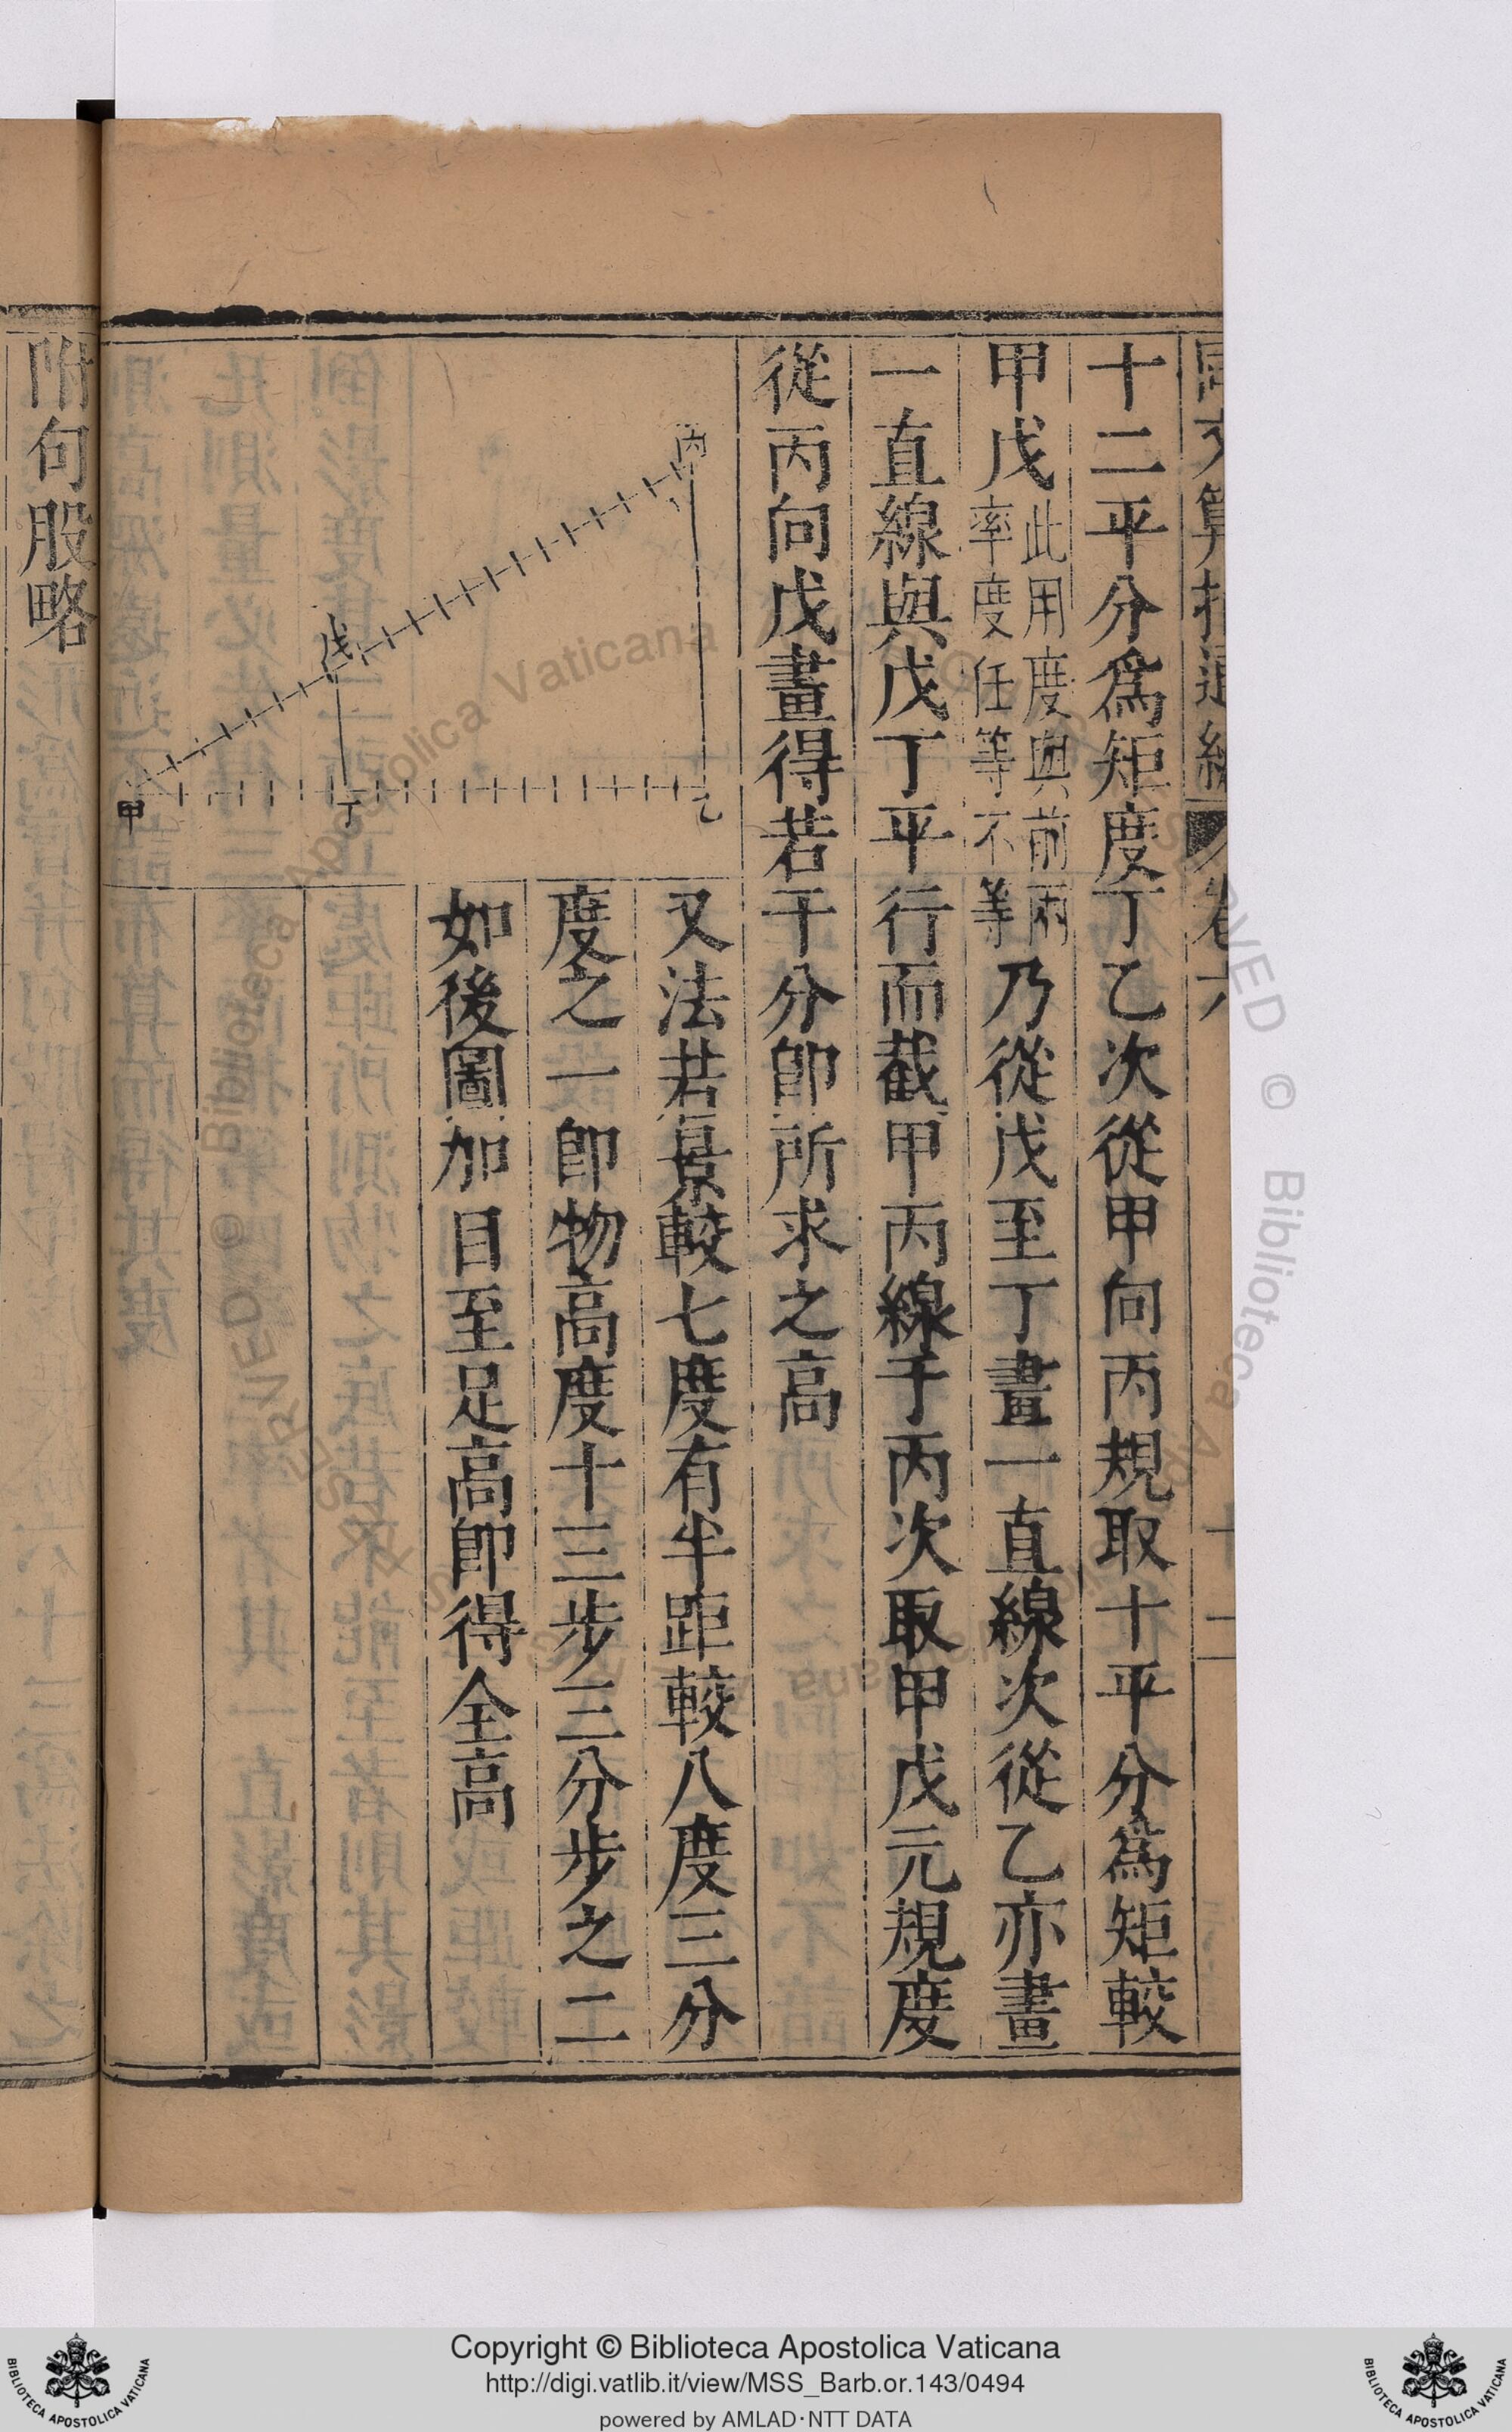 十二平分爲矩度丁乙次從甲向丙規取十平分爲矩較
甲戊此用度與前兩率度任等不等乃從戊至丁畫一直線次從乙亦畫
一直線與戊丁平行而截甲丙線于丙次取甲戊元規度
從丙向戊畫得若干分卽所求之高
丙
戊
甲
丁
乙
又法若景較七度有半距較八度三分
度之一卽物高度十三步三分步之二
如後圖加目至足高卽得全高
附句股略
Copyright © Biblioteca Apostolica Vaticana
http://digi.vatlib.it/view/MSS_Barb.or.143/0494
powered by AMLAD·NTT DATA
BIBLIOTECA APOSTOLICA VATICANA
BIBLIOTECA APOSTOLICA VATICANA